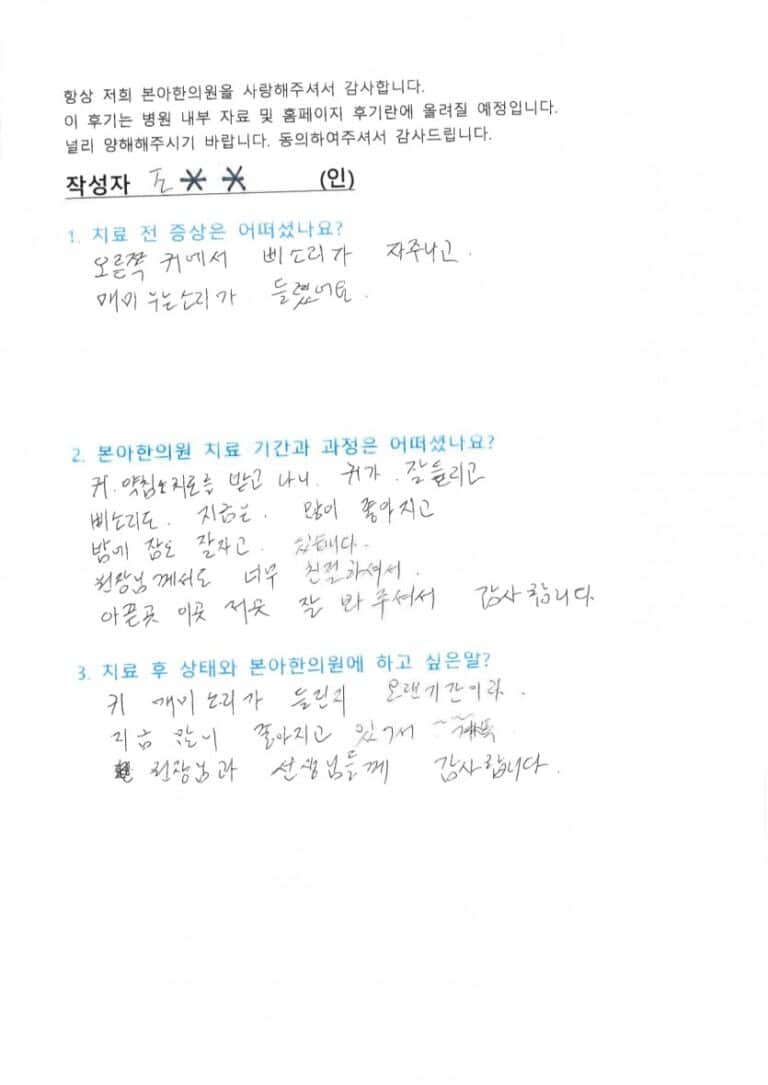 항상 저희 본아한의원을 사랑해주셔서 감사합니다.
이 후기는 병원 내부 자료 및 홈페이지 후기란에 올려질 예정입니다.
널리 양해해주시기 바랍니다. 동의하여주셔서 감사드립니다.
작성자 (인)
1. 치료 전 증상은 어떠셨나요?
오른쪽 귀에서 삐소리가 자주나고.
매미 우는소리가 들렸어요.
2. 본아한의원 치료 기간과 과정은 어떠셨나요?
귀. 약침 치료를 받고 나니. 귀가. 잘들리고
삐소리도. 지금은. 많이 좋아지고
밤에 잠도 잘자고. 있습니다.
원장님께서도 너무 친절하셔서.
아픈곳 이곳 저곳 잘 봐주셔서 감사합니다.
3. 치료 후 상태와 본아한의원에 하고 싶은말?
귀 매미소리가 들린지 오랜기간이라.
지금 많이 좋아지고 있어서
원장님과 선생님들께 감사합니다.